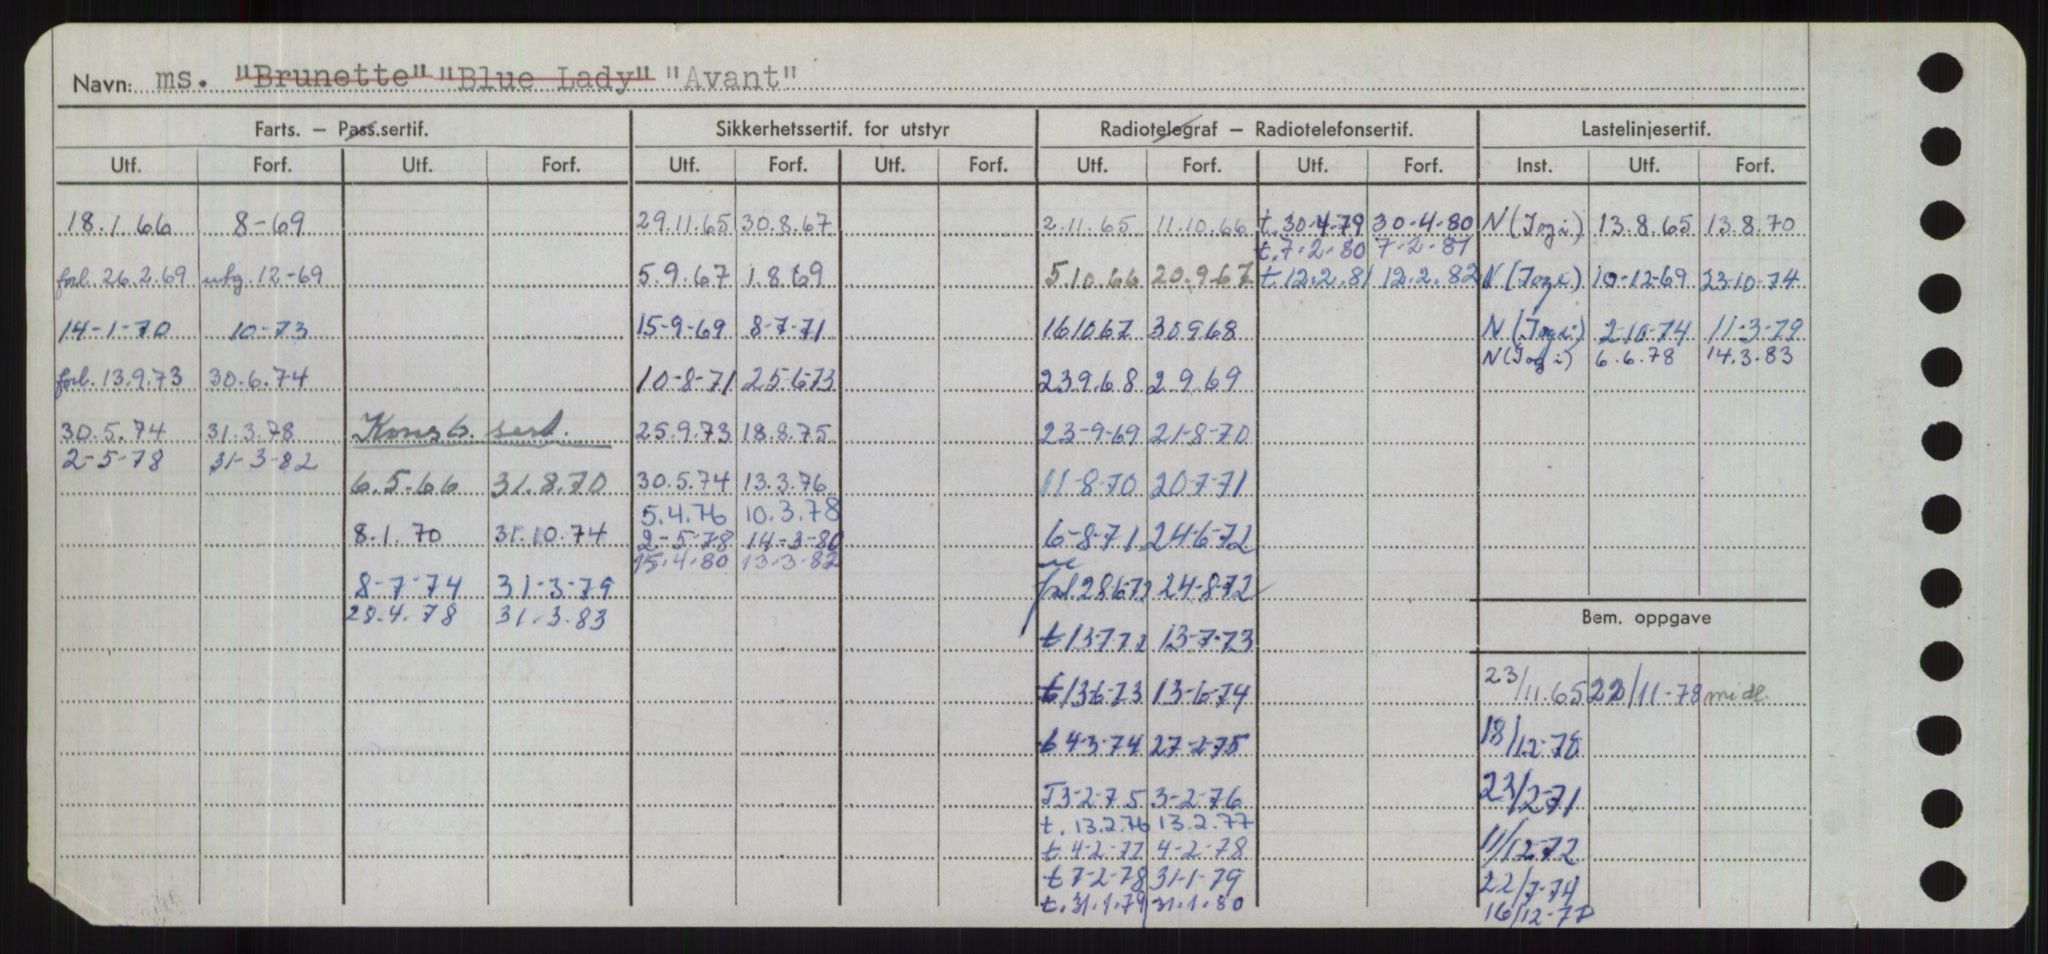 Navn: ms. "Brunette" "Blue Lady" "Avant"
Farts. — Pass.sertif. Sikkerhetssertif. for utstyr Radiotelegraf — Radiotelefonsertif. Lastelinjesertif.
Utf. Forf. Utf. Forf. Utf. Forf. Utf. Forf. Utf. Forf. Utf. Forf. Inst. Utf. Forf.
18.1.66 8-69 29.11.65 30.8.67 2.11.65 11.10.66 t.30-4-79 30-4-80 N (Jogi) 13.8.65 13.8.70
t.7-2-80 7-2-81
forl. 26.2.69 utg. 12-69 5.9.67 1.8.69 5.10.66 20.9.67 t.12.2.81 12.2.82 N (Jogi) 10-12-69 23-10-74
14-1-70 10-73 15-9-69 8-7-71 161067 30968 N (Jogi) 2-10-74 11-3-79
N (Jogi) 6.6.78 14.3.83
forl. 13.9.73 30.6.74 10-8-71 25.6-73 239.68 2969
30.5.74 31.3.78 Konstr. sert. 25.9.73 18.8.75 23-9-69 21-8-70
2-5-78 31-3-82
6.5.66 31.8.70 30.5.74 13.3.76 11-8-70 20-7-71
5.4.76 10.3.78
8.1.70 31.10.74 2.-5-78 14-3-80 6-8-71 24-6-72
15.4.80 13-3-82
8-7-74 31-3-79 forl 28672 24-8-72
28.4.78 31.3.83
Bem. oppgave
t 13-772 13-7-73
23/11.65 22/11-78 midl.
t 13-6-73 13-6-74
t 43-74 27-2-75 18/12-78
T3-2-75 3-2-76 23/2-71
t. 13.2.76 13.2.77
t 4-2-77 4-2-78 11/12-72
t 7-2-78 31-1-79 22/7-74
t.31.1.79 31.1.80 16/12-77